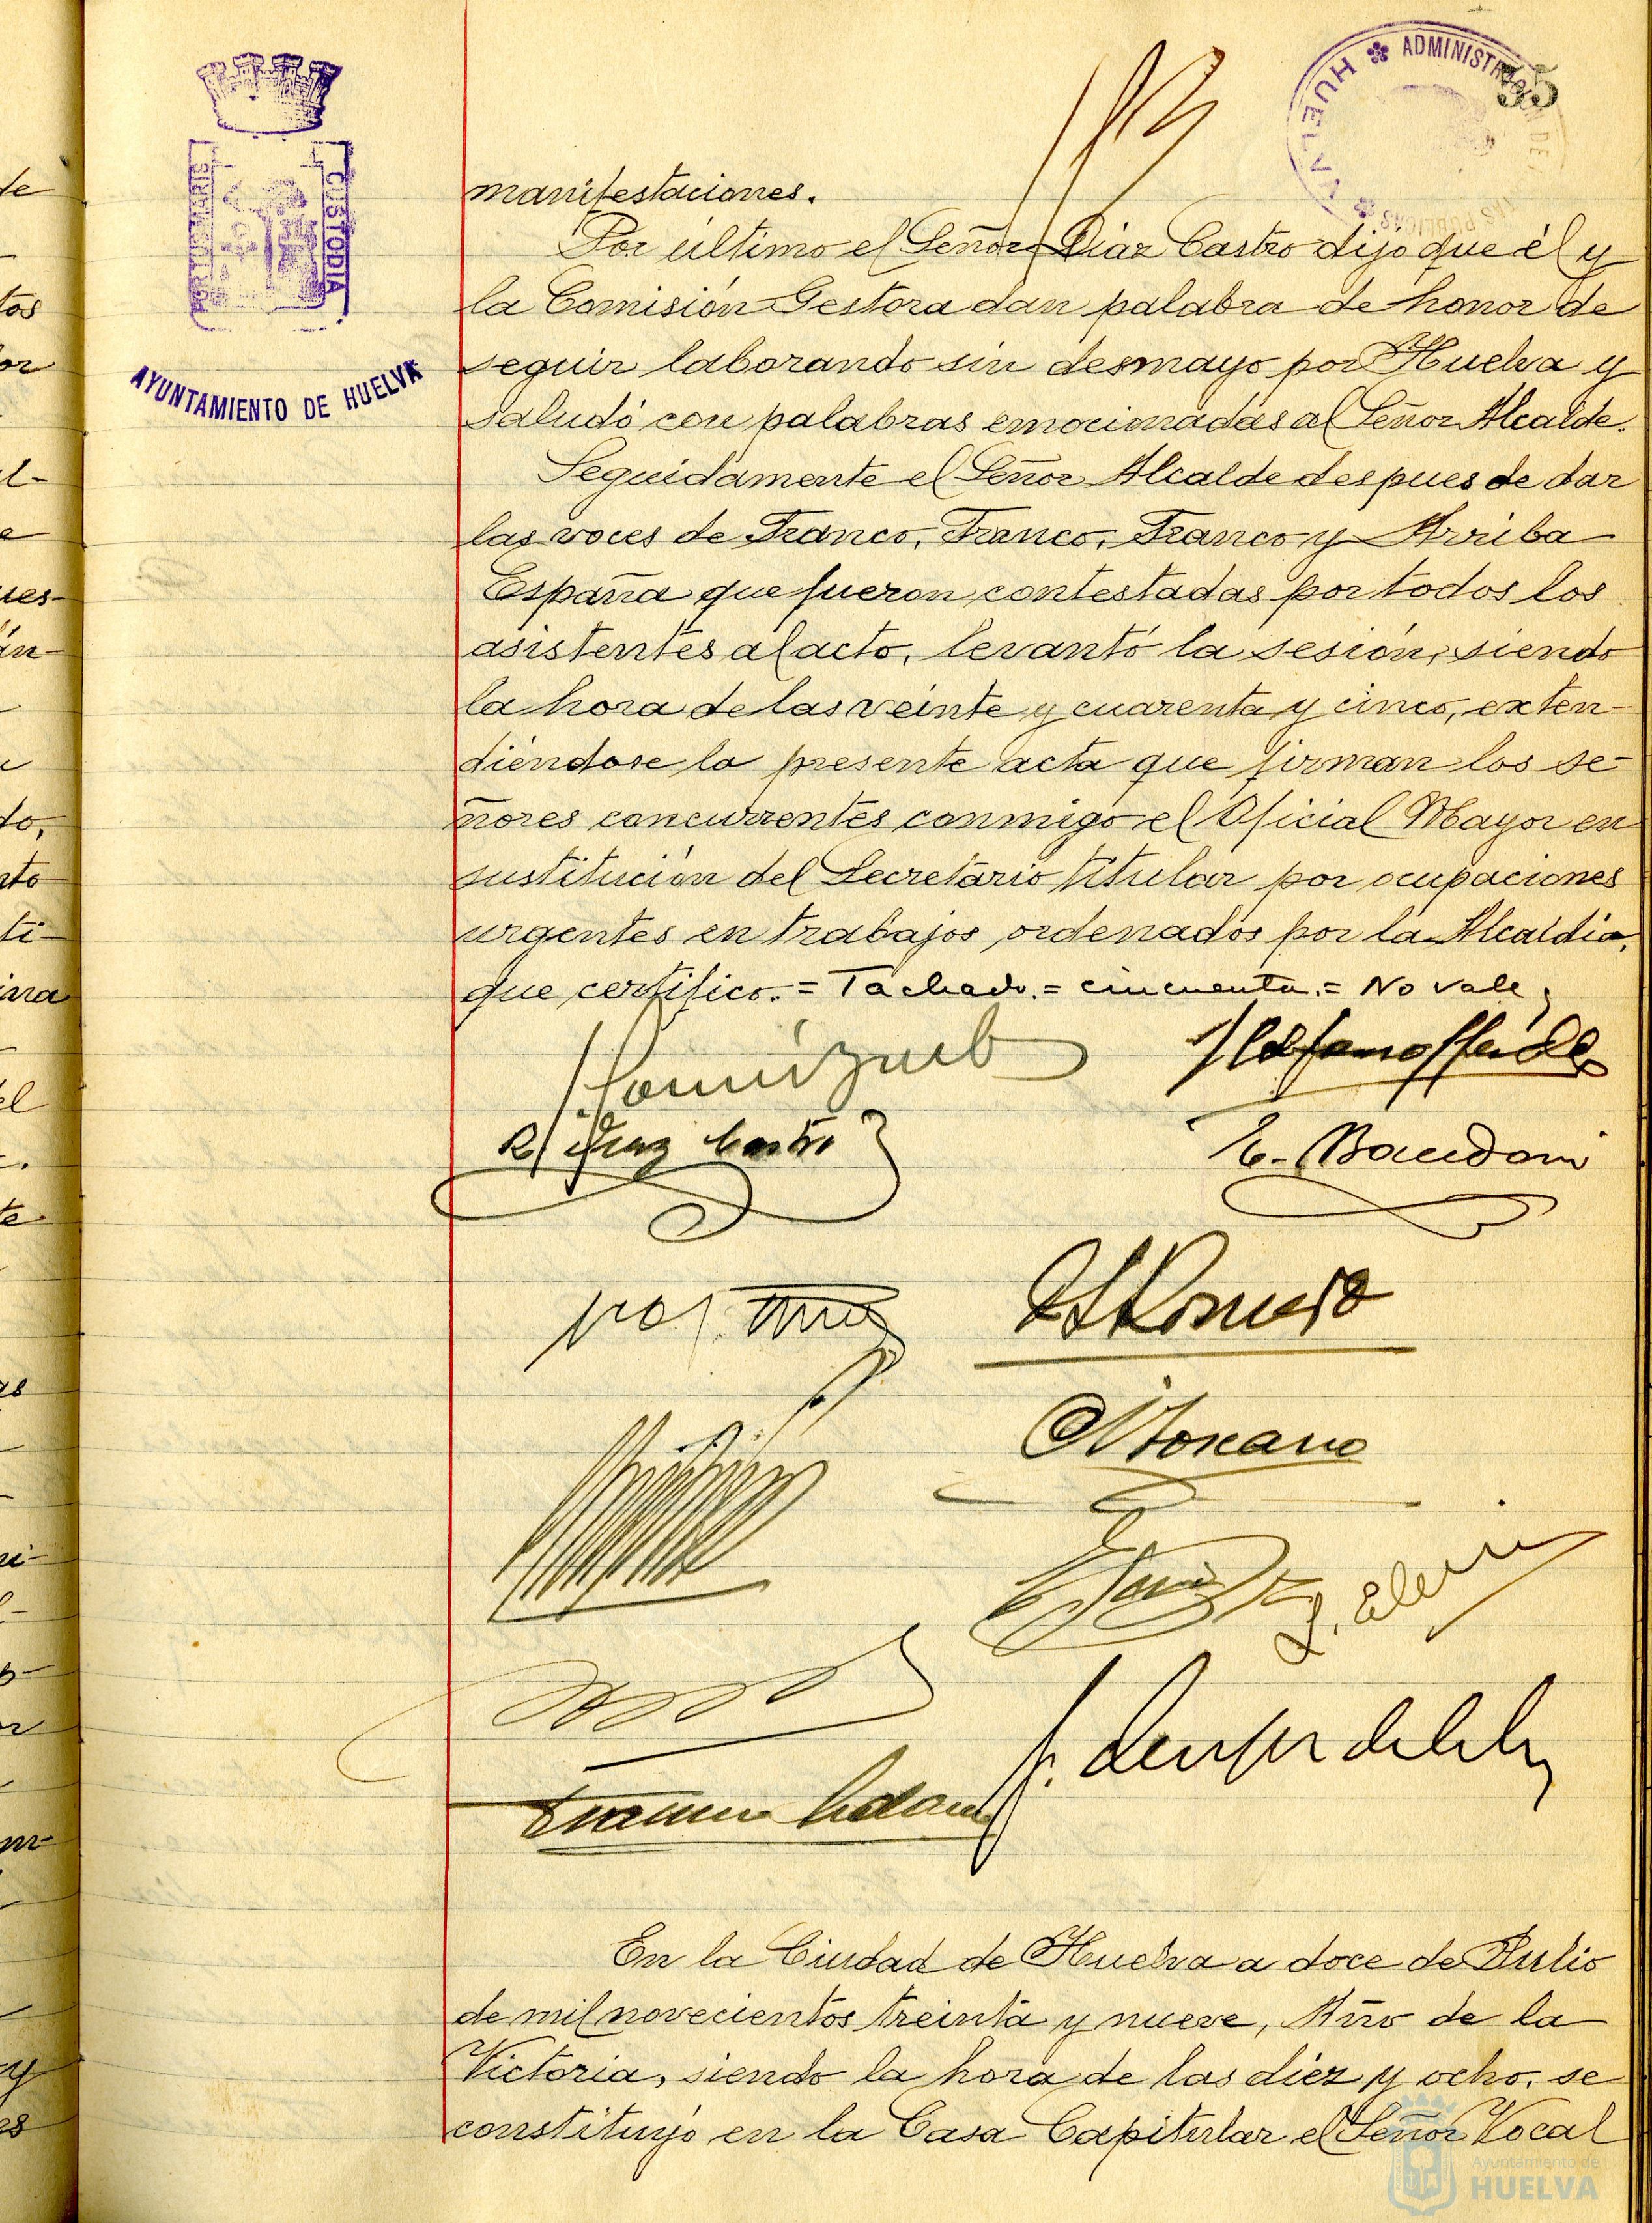 PORTUS MARIS
CUSTODIA
AYUNTAMIENTO DE HUELVA
ADMINISTRACION DE
HUELVA
35
manifestaciones.
Por último el Señor Diaz Castro dijo que él y
la Comisión Gestora dan palabra de honor de
seguir laborando sin desmayo por Huelva y
saludó con palabras emocionadas al Señor Alcalde.
Seguidamente el Señor Alcalde despues de dar
las voces de Franco, Franco, Franco y Arriba
España que fueron contestadas por todos los
asistentes al acto, levantó la sesión, siendo
la hora de las veinte y cuarenta y cinco, exten-
diéndose la presente acta que firman los se-
ñores concurrentes conmigo el Oficial Mayor en
sustitución del Secretario titular por ocupaciones
urgentes en trabajos ordenados por la Alcaldia,
que certifico.= Tachado.= cincuenta.= No vale;
R. Diaz Castro
Romero
En la Ciudad de Huelva a doce de Julio
de mil novecientos treinta y nueve, Año de la
Victoria, siendo la hora de las diez y ocho, se
constituyó en la Casa Capitular el Señor Vocal
Ayuntamiento de
HUELVA